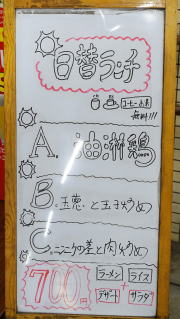 日替ランチ
コーヒー
無料!!!
A. 油淋鶏
B. 玉葱と玉子炒め
C. ニンニクの芽と肉炒め
700円
ラーメン
ライス
+
デザート
サラダ